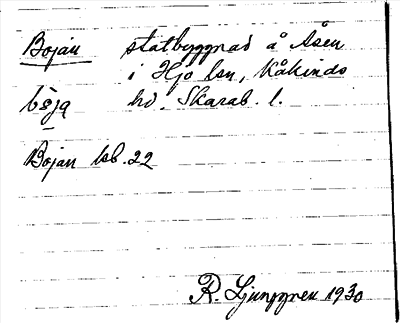 Bojan statbyggnad å Åsen
i Hjo lsn, Kåkinds
bòja hd. Skarab. l.
Bojan lsb. 22
R. Ljunggren 1930